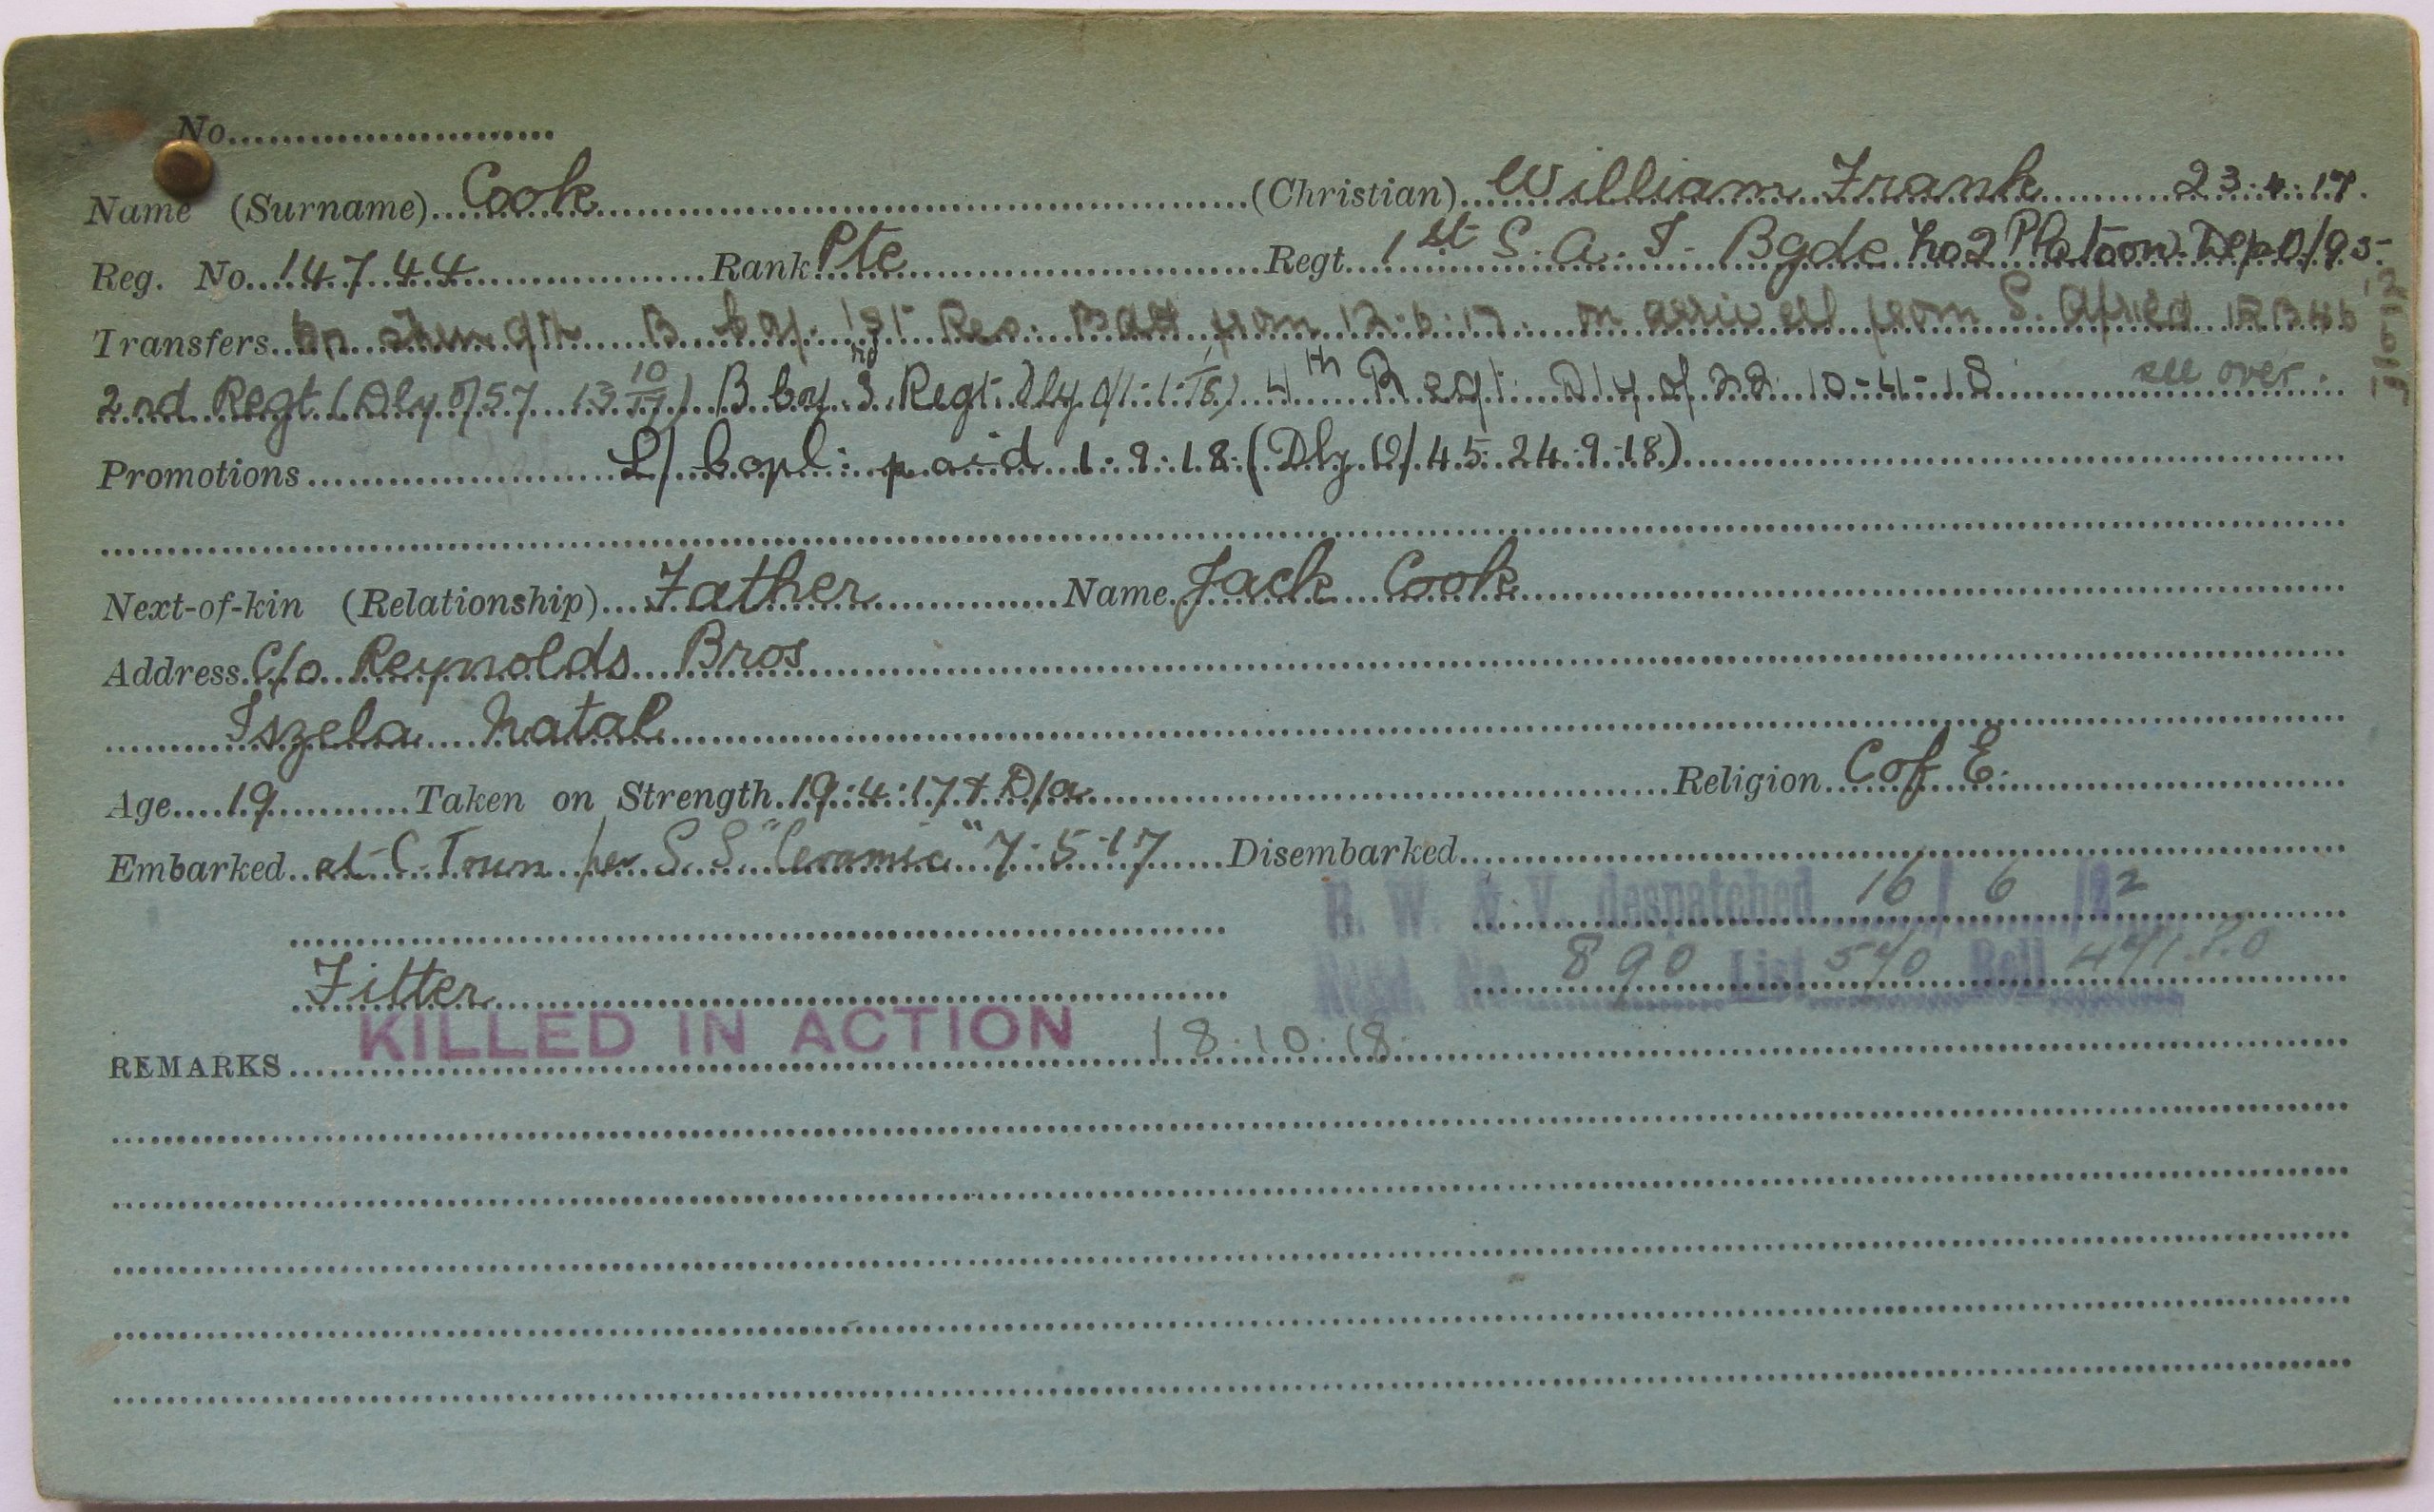 No.
Name (Surname) Cook (Christian) William Frank 23.4.17.
Reg. No. 14744 Rank Pte Regt. 1st S. A. I. Bgde No 2 Platoon Dep O/95
Transfers On strength B Coy. 1st Res. Batt from 12.6.17. on arrival from S. Africa
2nd Regt (Dly O/57 13 10/17) B Coy 3rd Regt. Dly O/1. 1/1/18) 4th Regt. Dly O/ 22 10-4-18 see over.
Promotions L/ Copl: paid 1.9.18 (Dly O/45 24.9.18)
Next-of-kin (Relationship) Father Name Jack Cook
Address C/o Reynolds Bros
Iszela Natal
Age 19 Taken on Strength 19.4.17 D/a Religion C of E.
Embarked at C. Town per S.S. "Ceramic" 7.5.17 Disembarked
B. W. & V. despatched 16/6/22
Fitter Regd. No. 890 List 540 Roll 471.P.O
REMARKS KILLED IN ACTION 18.10.18.